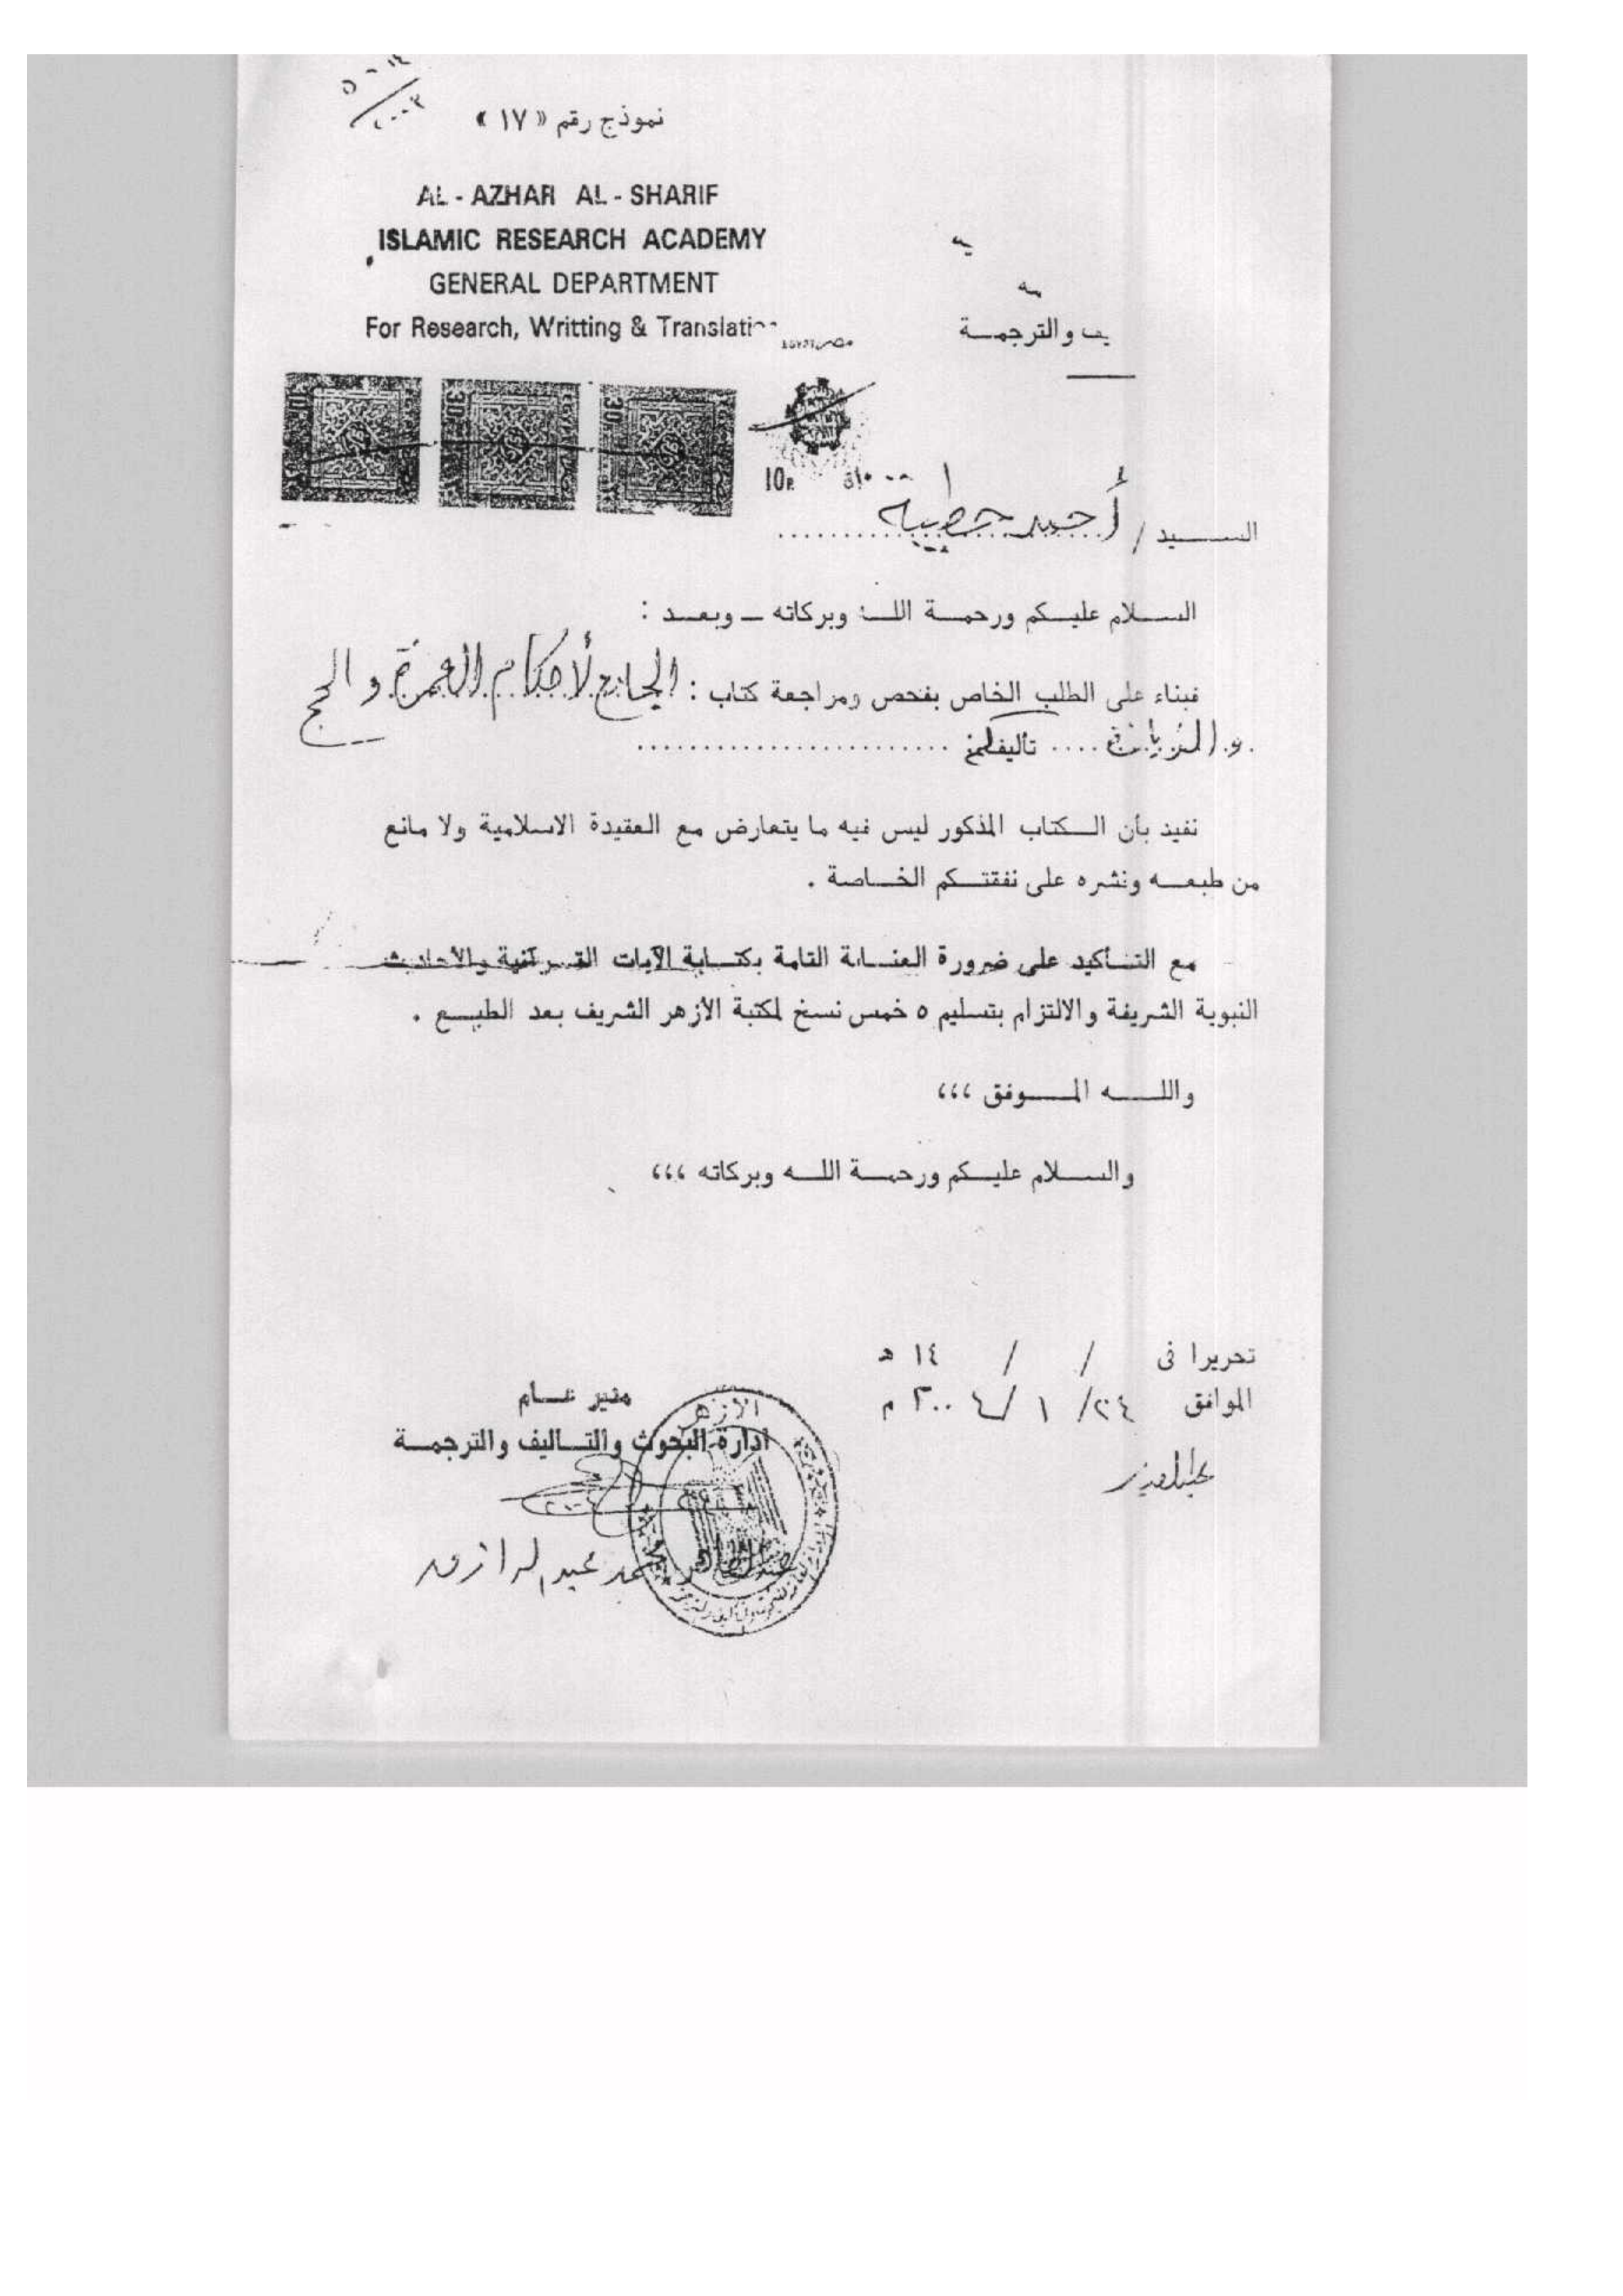 نموذج رقم « ١٧ »
AL - AZHAR AL - SHARIF
ISLAMIC RESEARCH ACADEMY
GENERAL DEPARTMENT
For Research, Writting & Translati
يف والترجمة
10P.
السيد / أحمد حطيبه
السلام عليكم ورحمة الله وبركاته ـ وبعد :
فبناء على الطلب الخاص بفحص ومراجعة كتاب : الجامع لأحكام العمرة والحج
والزيارة .... تأليف
نفيد بأن الكتاب المذكور ليس فيه ما يتعارض مع العقيدة الاسلامية ولا مانع
من طبعه ونشره على نفقتكم الخاصة .
مع التأكيد على ضرورة العناية التامة بكتابة الآيات القرآنية والأحاديث
النبوية الشريفة والالتزام بتسليم ٥ خمس نسخ لمكتبة الأزهر الشريف بعد الطبع .
والله الموفق ،،،
والسلام عليكم ورحمة الله وبركاته ،،،
تحريرا فى / / ١٤ هـ
الموافق ٢٤ / ١ / ٢٠٠٤ م
مدير عام
ادارة البحوث والتأليف والترجمة
الازهر
عبد الرازق